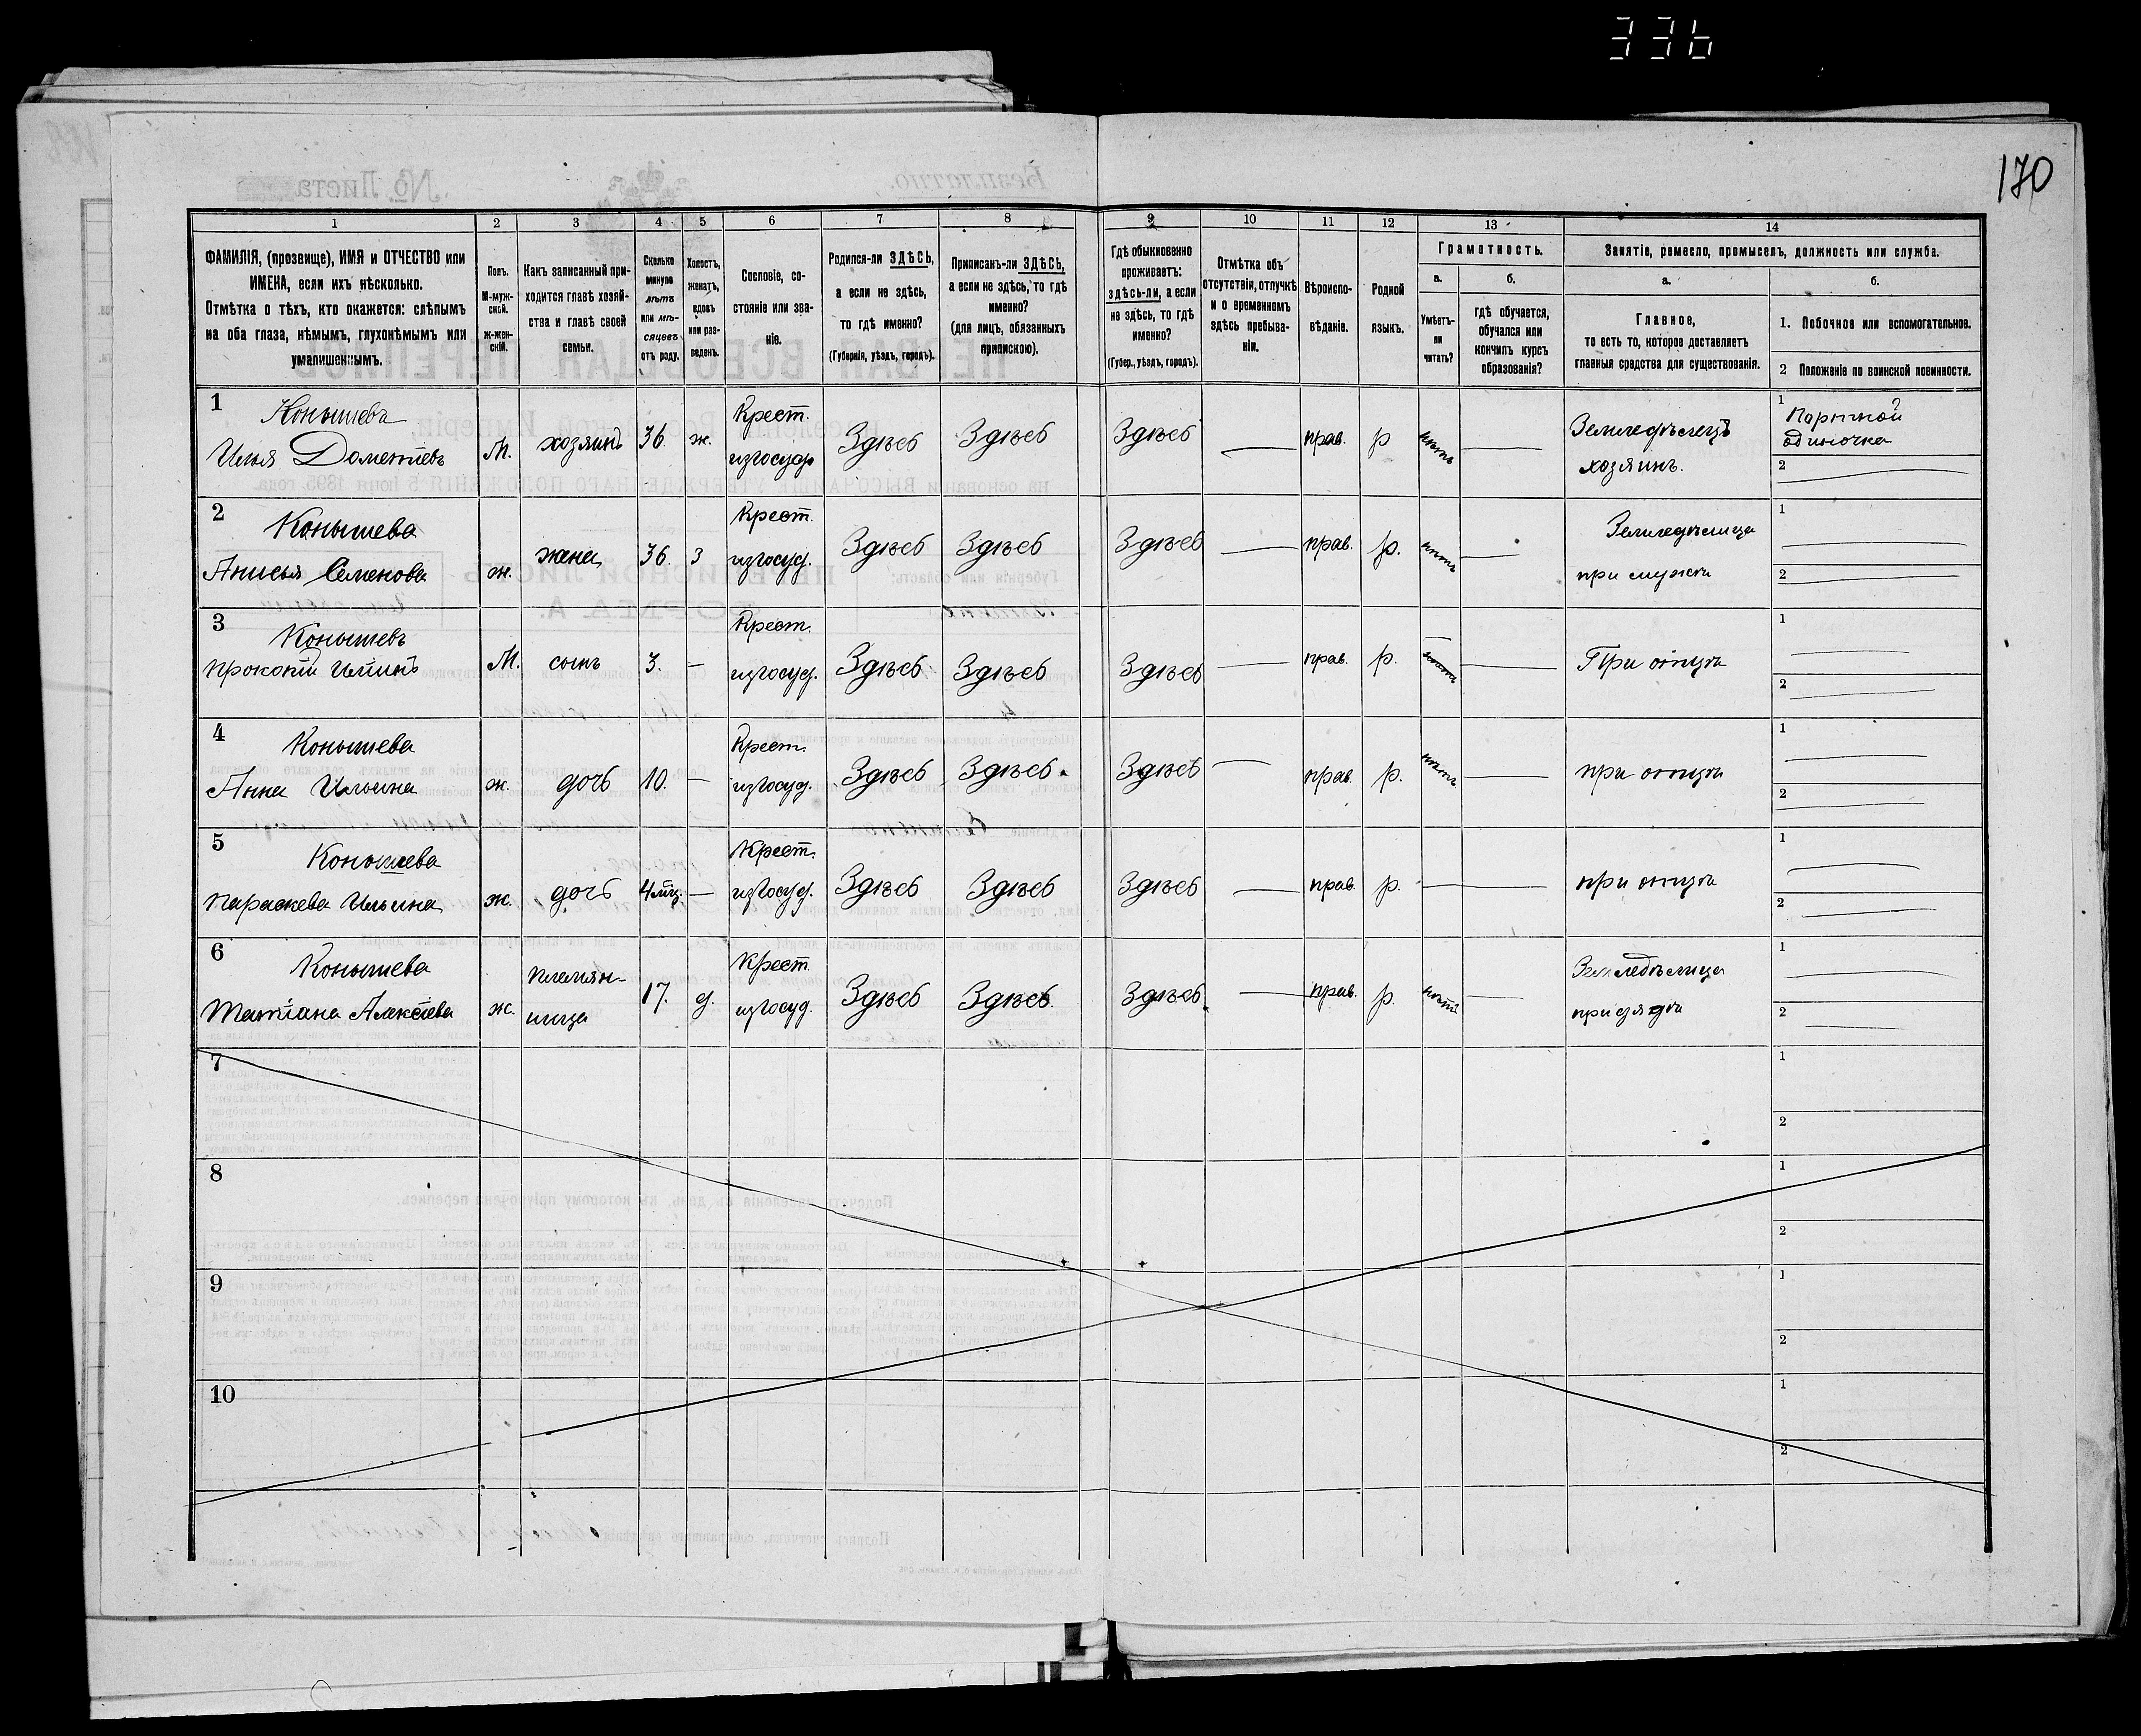 336
170
1 2 3 4 5 6 7 8 9 10 11 12 13 14
ФАМИЛІЯ, (прозвище), ИМЯ и ОТЧЕСТВО или
ИМЕНА, если ихъ нѣсколько.
Отмѣтка о тѣхъ, кто окажется: слѣпымъ
на оба глаза, нѣмымъ, глухонѣмымъ или
умалишеннымъ.
Полъ.
М-муж-
ской.
ж-жен-
скій.
Какъ записанный при-
ходится главѣ хозяй-
ства и главѣ своей
семьи.
Сколько
минуло
лѣтъ
или мѣ-
сяцевъ
отъ роду.
Холостъ,
женатъ,
вдовъ
или раз-
веденъ.
Сословіе, со-
стояніе или зва-
ніе.
Родился-ли ЗДѢСЬ,
а если не здѣсь,
то гдѣ именно?
(Губернія, уѣздъ, городъ).
Приписанъ-ли ЗДѢСЬ,
а если не здѣсь, то гдѣ
именно?
(для лицъ, обязанныхъ
припискою).
Гдѣ обыкновенно
проживаетъ:
здѣсь-ли, а если
не здѣсь, то гдѣ
именно?
(Губер., уѣздъ, городъ).
Отмѣтка объ
отсутствіи, отлучкѣ
и о временномъ
здѣсь пребыва-
ніи.
Вѣроиспо-
вѣданіе.
Родной
языкъ.
Грамотность.
а.
Умѣетъ-
ли
читать?
б.
гдѣ обучается,
обучался или
кончилъ курсъ
образованія?
Занятіе, ремесло, промыселъ, должность или служба.
а.
Главное,
то есть то, которое доставляетъ
главныя средства для существованія.
б.
1. Побочное или вспомогательное.
2 Положеніе по воинской повинности.
1 Конышевъ Крест. 1 Портной
Илья Дометіевъ М. хозяинъ 36. ж. изгосуд Здѣсь Здѣсь Здѣсь — прав. р нѣтъ — Земледѣлецъ одиночка
хозяинъ. 2
2 Конышева Крест. Земледѣлица 1
Анисья Семенова ж. жена 36. з изгосуд. Здѣсь Здѣсь Здѣсь — прав. р. нѣтъ — при мужѣ 2
3 Конышевъ Крест. 1
Прокопій Ильинъ М. сынъ 3. — изгосуд. Здѣсь Здѣсь Здѣсь — прав. р. нѣтъ — При отцѣ 2
4 Конышева Крест. 1
Анна Ильина ж. дочь 10. — изгосуд. Здѣсь Здѣсь Здѣсь — прав. р. нѣтъ — при отцѣ 2
5 Конышева Крест. 1
Параскева Ильина ж. дочь 4 мц. — изгосуд. Здѣсь Здѣсь Здѣсь — прав. р. — — при отцѣ 2
6 Конышева племян- Крест. Земледѣлица 1
Татіана Алексіева ж. ница 17. д. изгосуд. Здѣсь Здѣсь. Здѣсь — прав. р. нѣтъ — при дядѣ 2
7 1
2
8 1
2
9 1
2
10 1
2